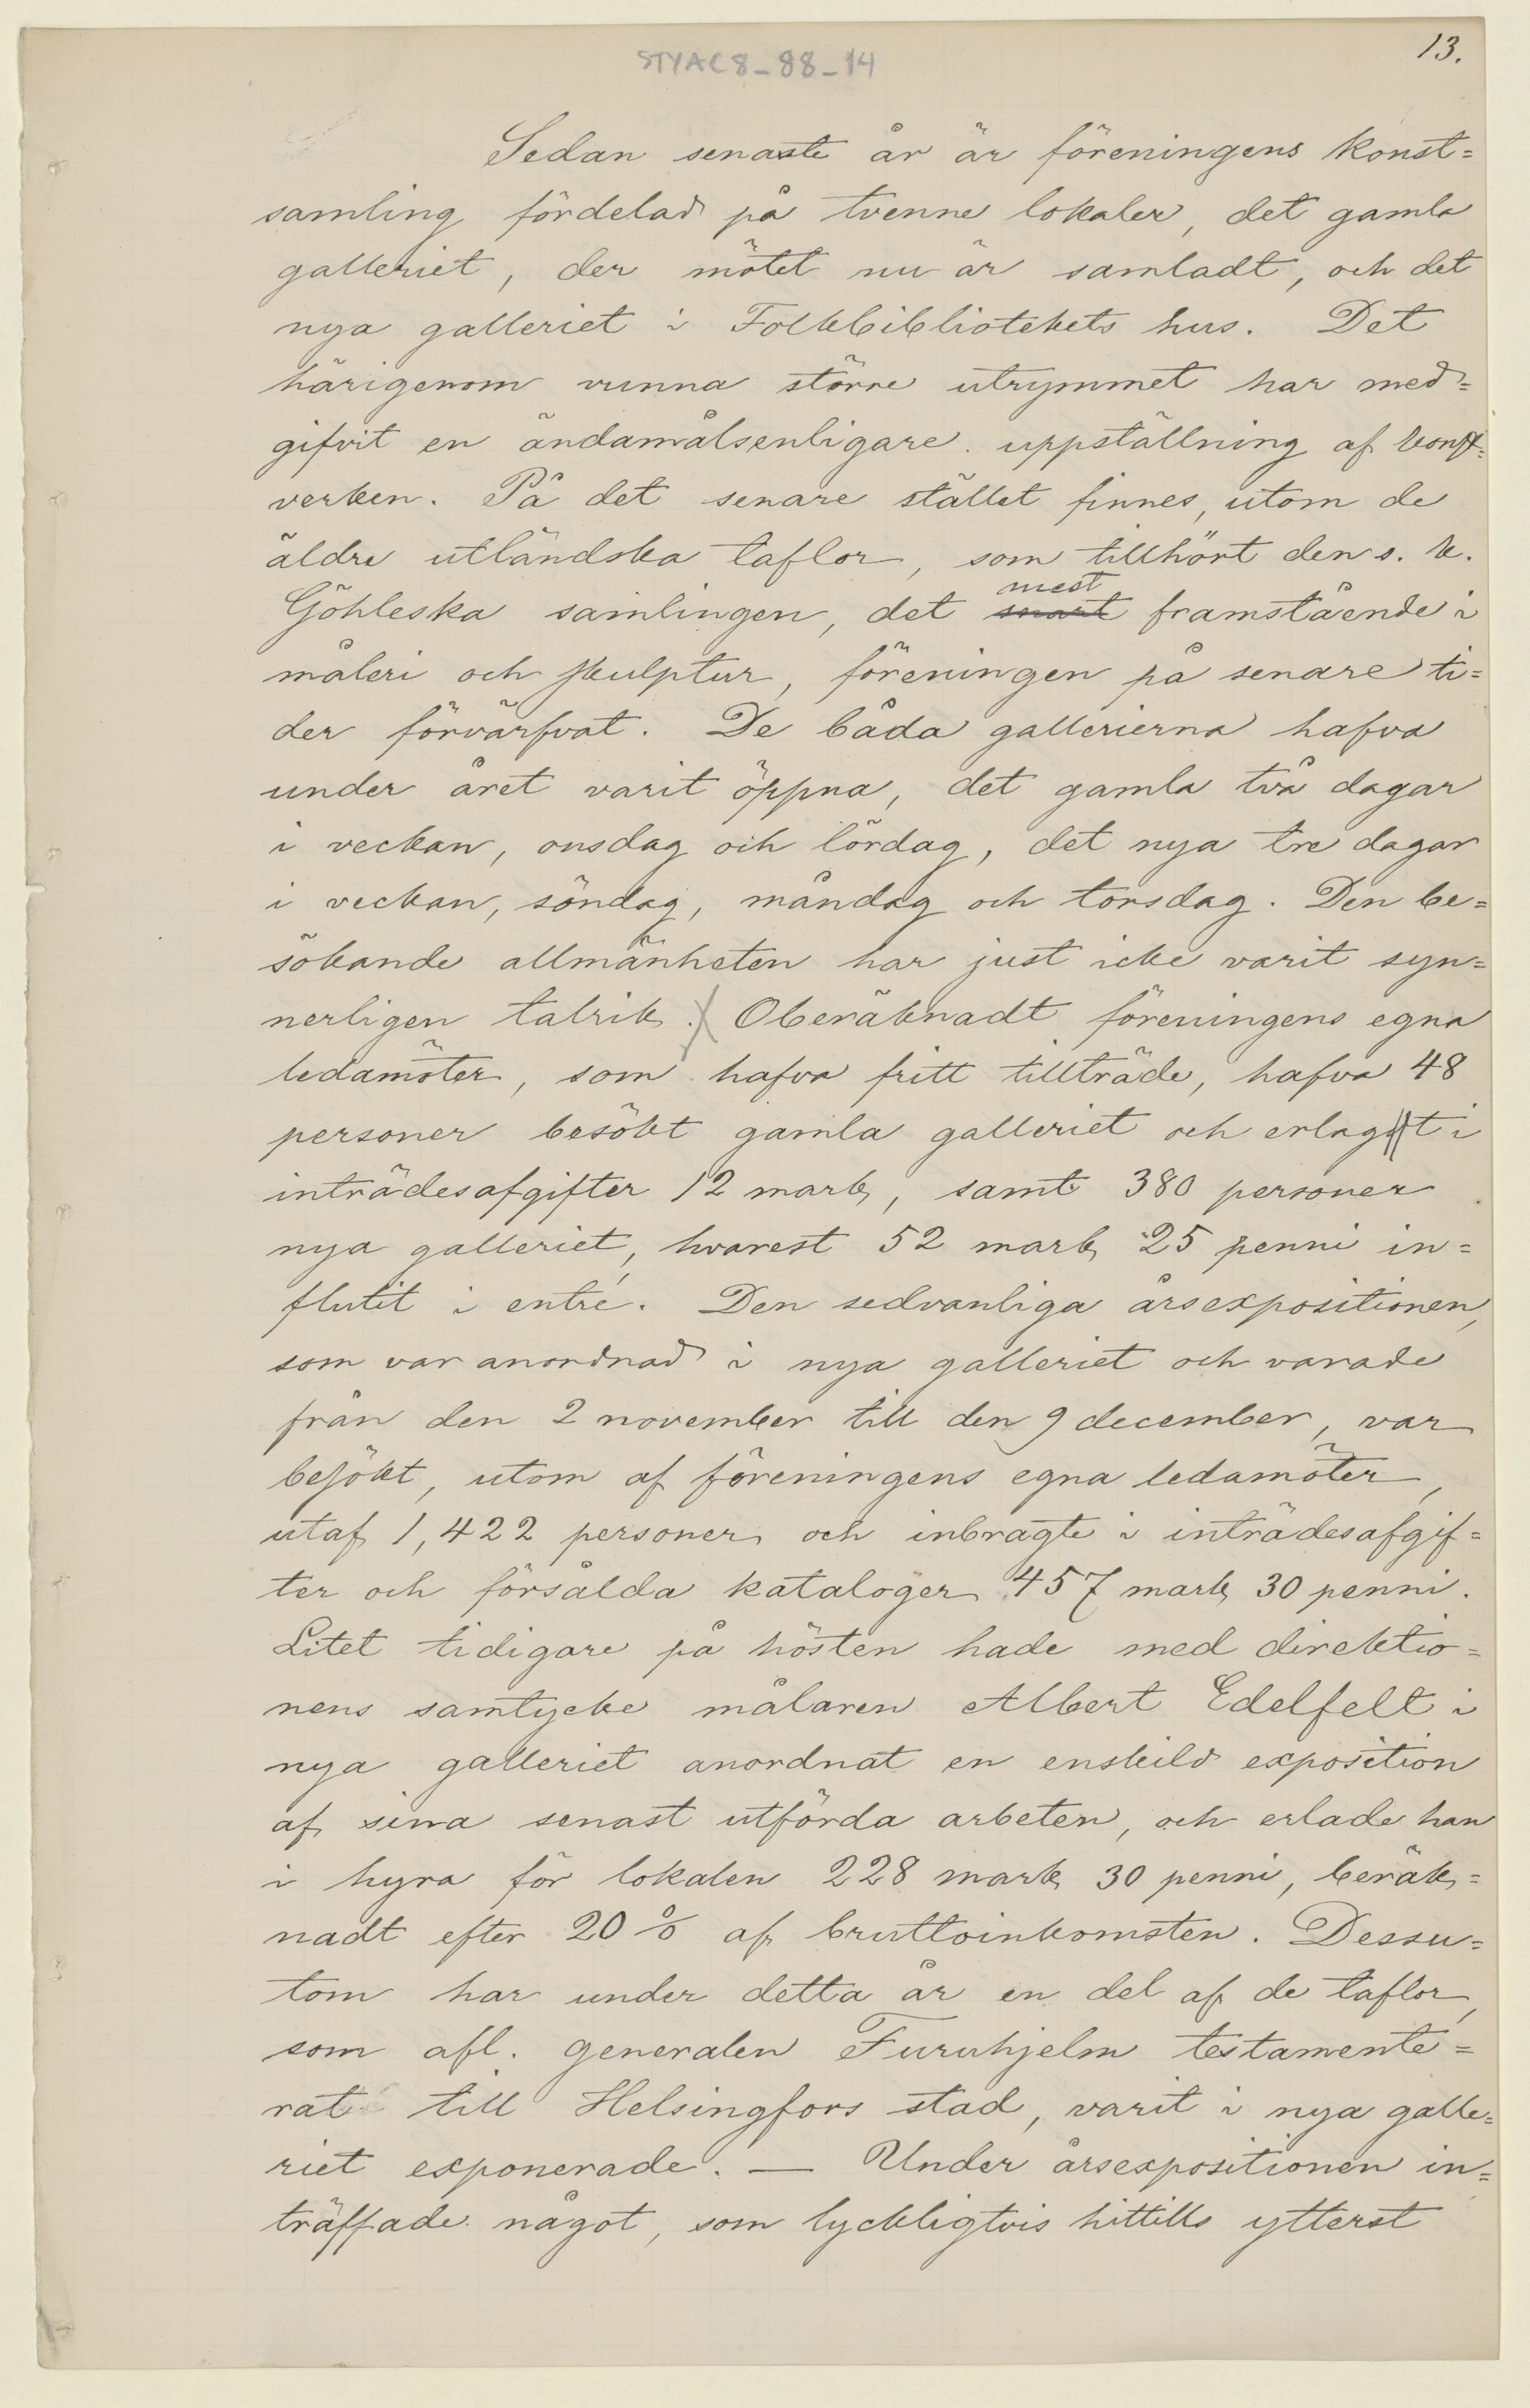 STYAC8_88_14
13.
Sedan senaste år är föreningens konst=
samling fördelad på tvenne lokaler, det gamla
galleriet, der mötet nu är samladt, och det
nya galleriet i Folkbibliotekets hus. Det
härigenom vunna större utrymmet har med=
gifvit en ändamålsenligare uppställning af konst=
verken. På det senare stället finnes, utom de
äldre utländska taflor, som tillhört den s. k.
mest
Göhleska samlingen, det snart framstående i
måleri och skulptur, föreningen på senare ti=
der förvärfvat. De båda gallerierna hafva
under året varit öppna, det gamla två dagar
i veckan, onsdag och lördag, det nya tre dagar
i veckan, söndag, måndag och torsdag. Den be=
sökande allmänheten har just icke varit syn=
nerligen talrik. Oberäknadt föreningens egna
ledamöter, som hafva fritt tillträde, hafva 48
personer besökt gamla galleriet och erlagt i
inträdesafgifter 12 mark, samt 380 personer
nya galleriet, hvarest 52 mark 25 penni in=
flutit i entré. Den sedvanliga årsexpositionen,
som var anordnad i nya galleriet och varade
från den 2 november till den 9 december, var
besökt, utom af föreningens egna ledamöter,
utaf 1,422 personer och inbragte i inträdesafgif=
ter och försålda kataloger 457 mark 30 penni.
Litet tidigare på hösten hade med direktio=
nens samtycke målaren Albert Edelfelt i
nya galleriet anordnat en enskild exposition
af sina senast utförda arbeten, och erlade han
i hyra för lokalen 228 mark 30 penni, beräk=
nadt efter 20 % af bruttoinkomsten. Dessu=
tom har under detta år en del af de taflor,
som afl. generalen Furuhjelm testamente=
rat till Helsingfors stad, varit i nya galle=
riet exponerade. — Under årsexpositionen in=
träffade något, som lyckligtvis hittills ytterst